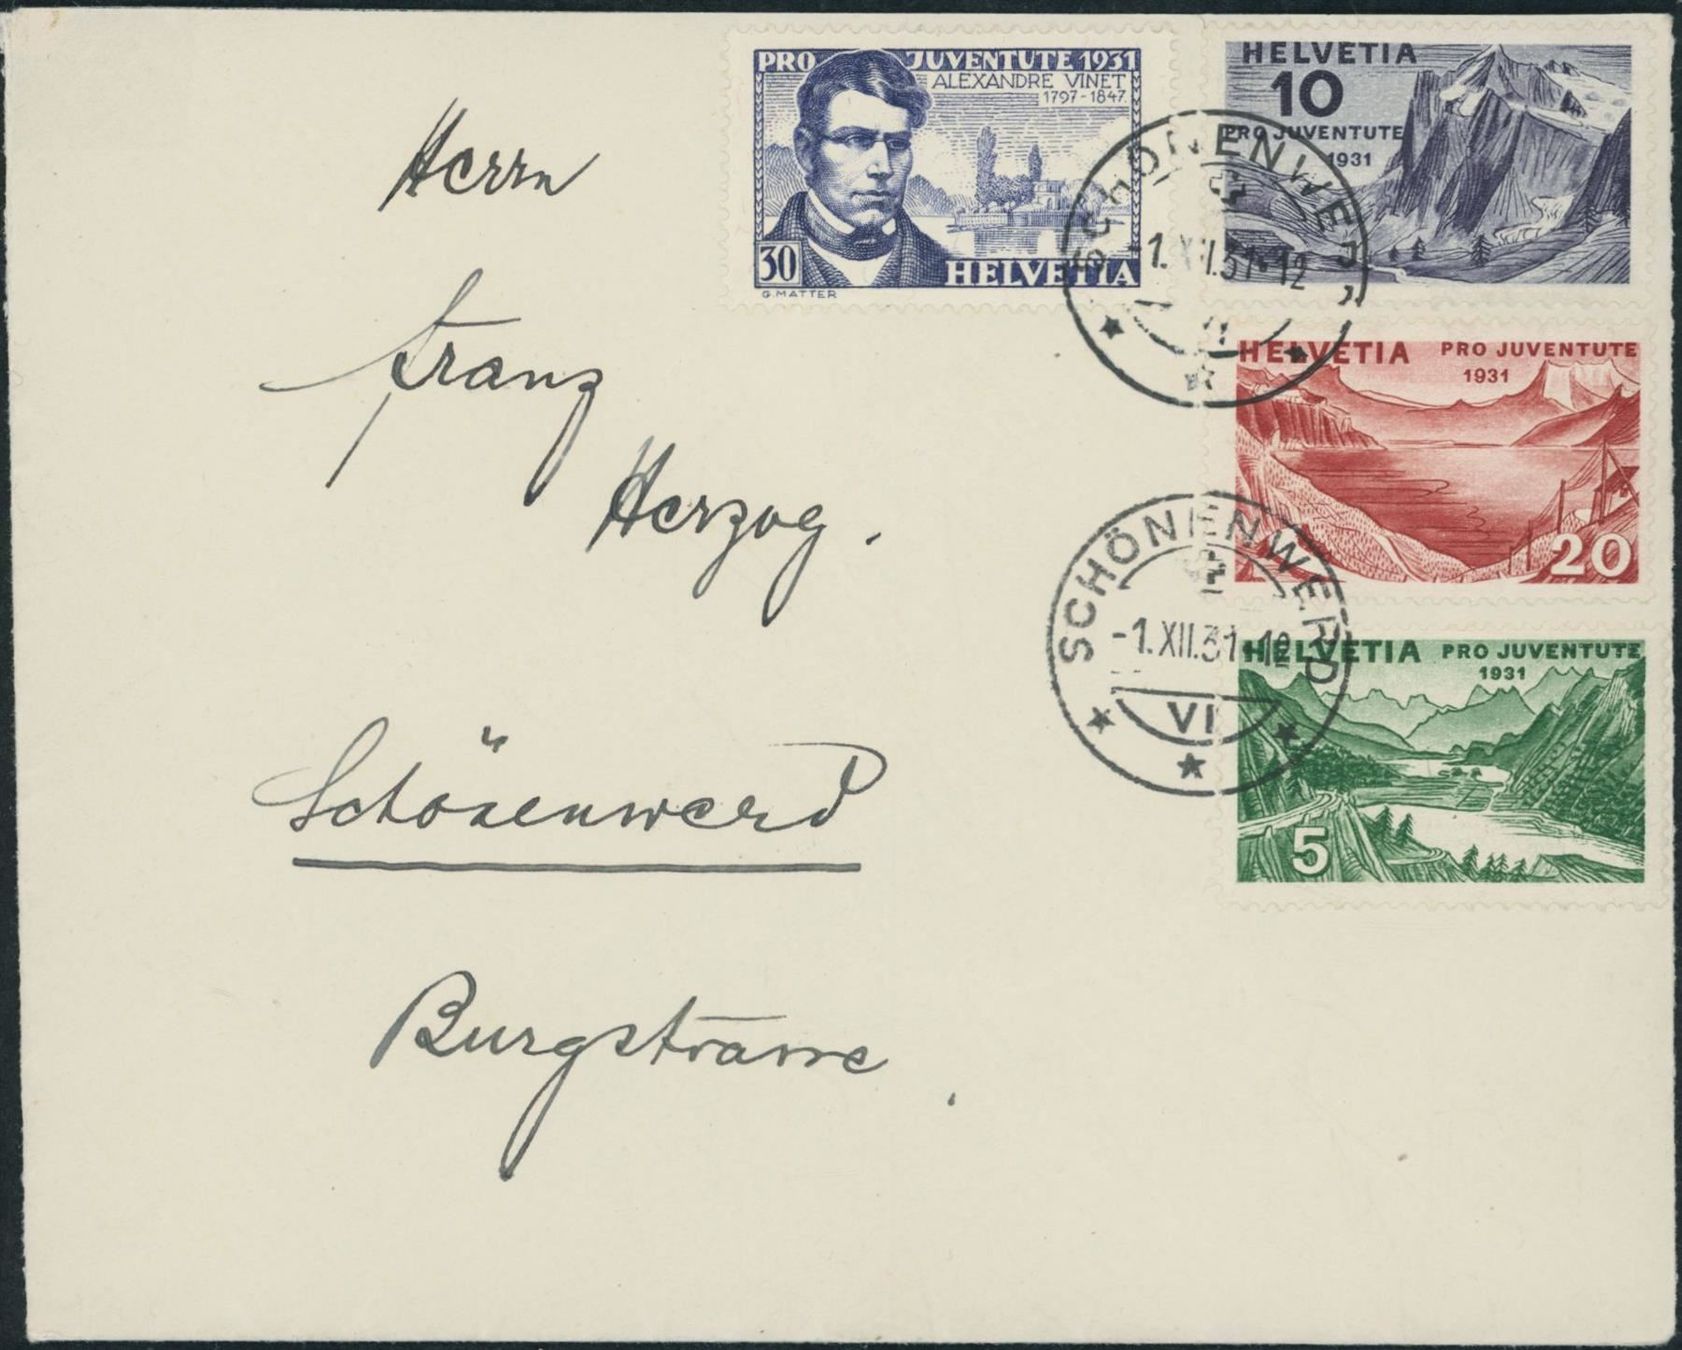 PRO JUVENTUTE 1931
ALEXANDRE VINET
1797-1847.
30
HELVETIA
G. MATTER
HELVETIA
10
PRO JUVENTUTE
1931
SCHÖNENWERD
-1.XII.31-12
VI
HELVETIA PRO JUVENTUTE
1931
20
SCHÖNENWERD
-1.XII.31-12
VI
HELVETIA PRO JUVENTUTE
1931
5
Herrn
Franz
Herzog.
Schönenwerd
Burgstrasse.